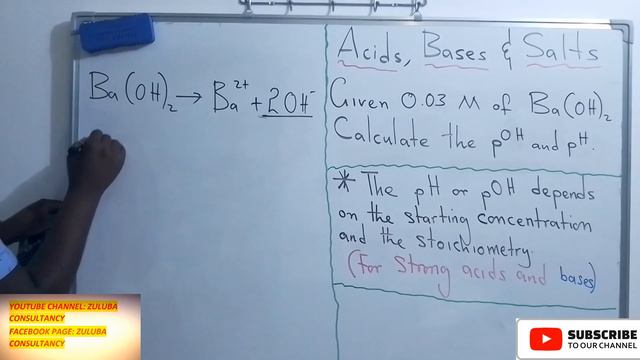 Ba(OH)₂ → Ba²⁺ + 2OH⁻
Acids, Bases & Salts
Given 0.03 M of Ba(OH)₂
Calculate the pOH and pH.
* The pH or pOH depends
on the starting concentration
and the stoichiometry
(For Strong acids and bases)
YOUTUBE CHANNEL: ZULUBA
CONSULTANCY
FACEBOOK PAGE: ZULUBA
CONSULTANCY
SUBSCRIBE
TO OUR CHANNEL